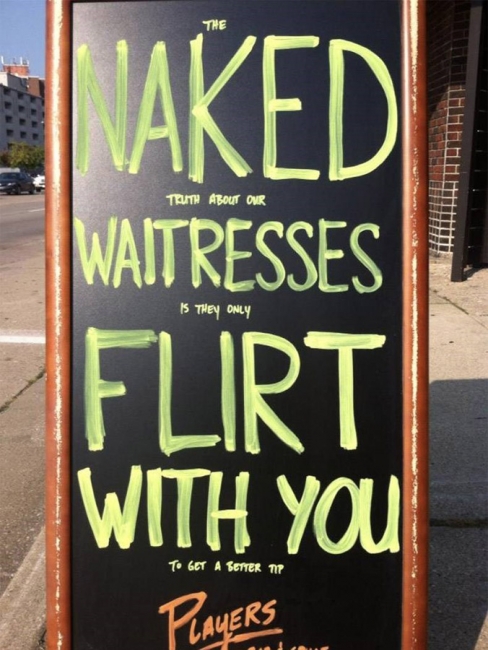 THE
NAKED
TRUTH ABOUT OUR
WAITRESSES
IS THEY ONLY
FLIRT
WITH YOU
TO GET A BETTER TIP
PLAYERS